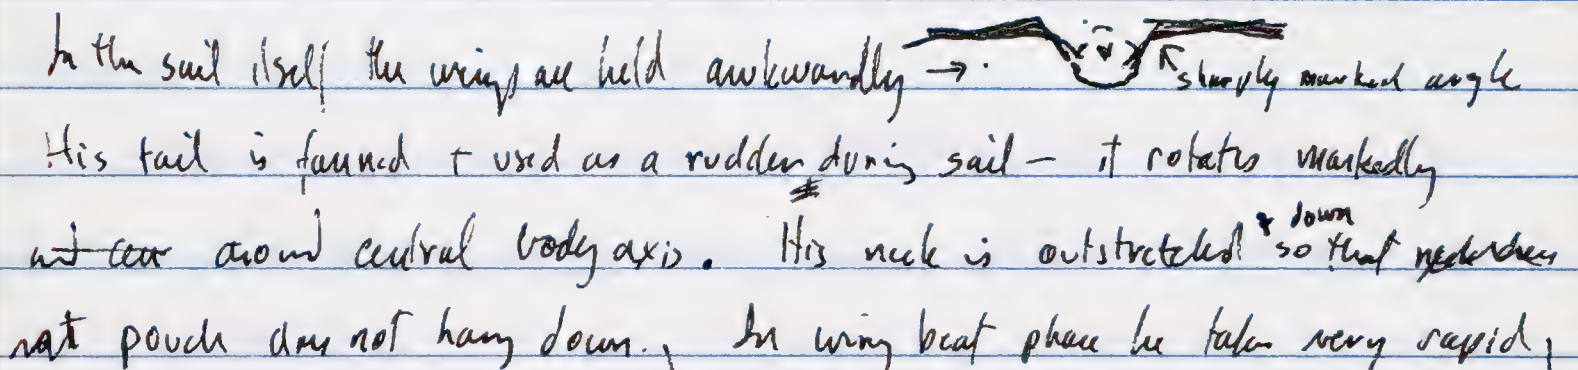 In the sail itself the wings are held awkwardly → sharply marked angle
His tail is fanned + used as a rudder during sail – it rotates markedly
around central body axis. His neck is outstretched + down so that
pouch does not hang down. In wing beat phase he takes very rapid,